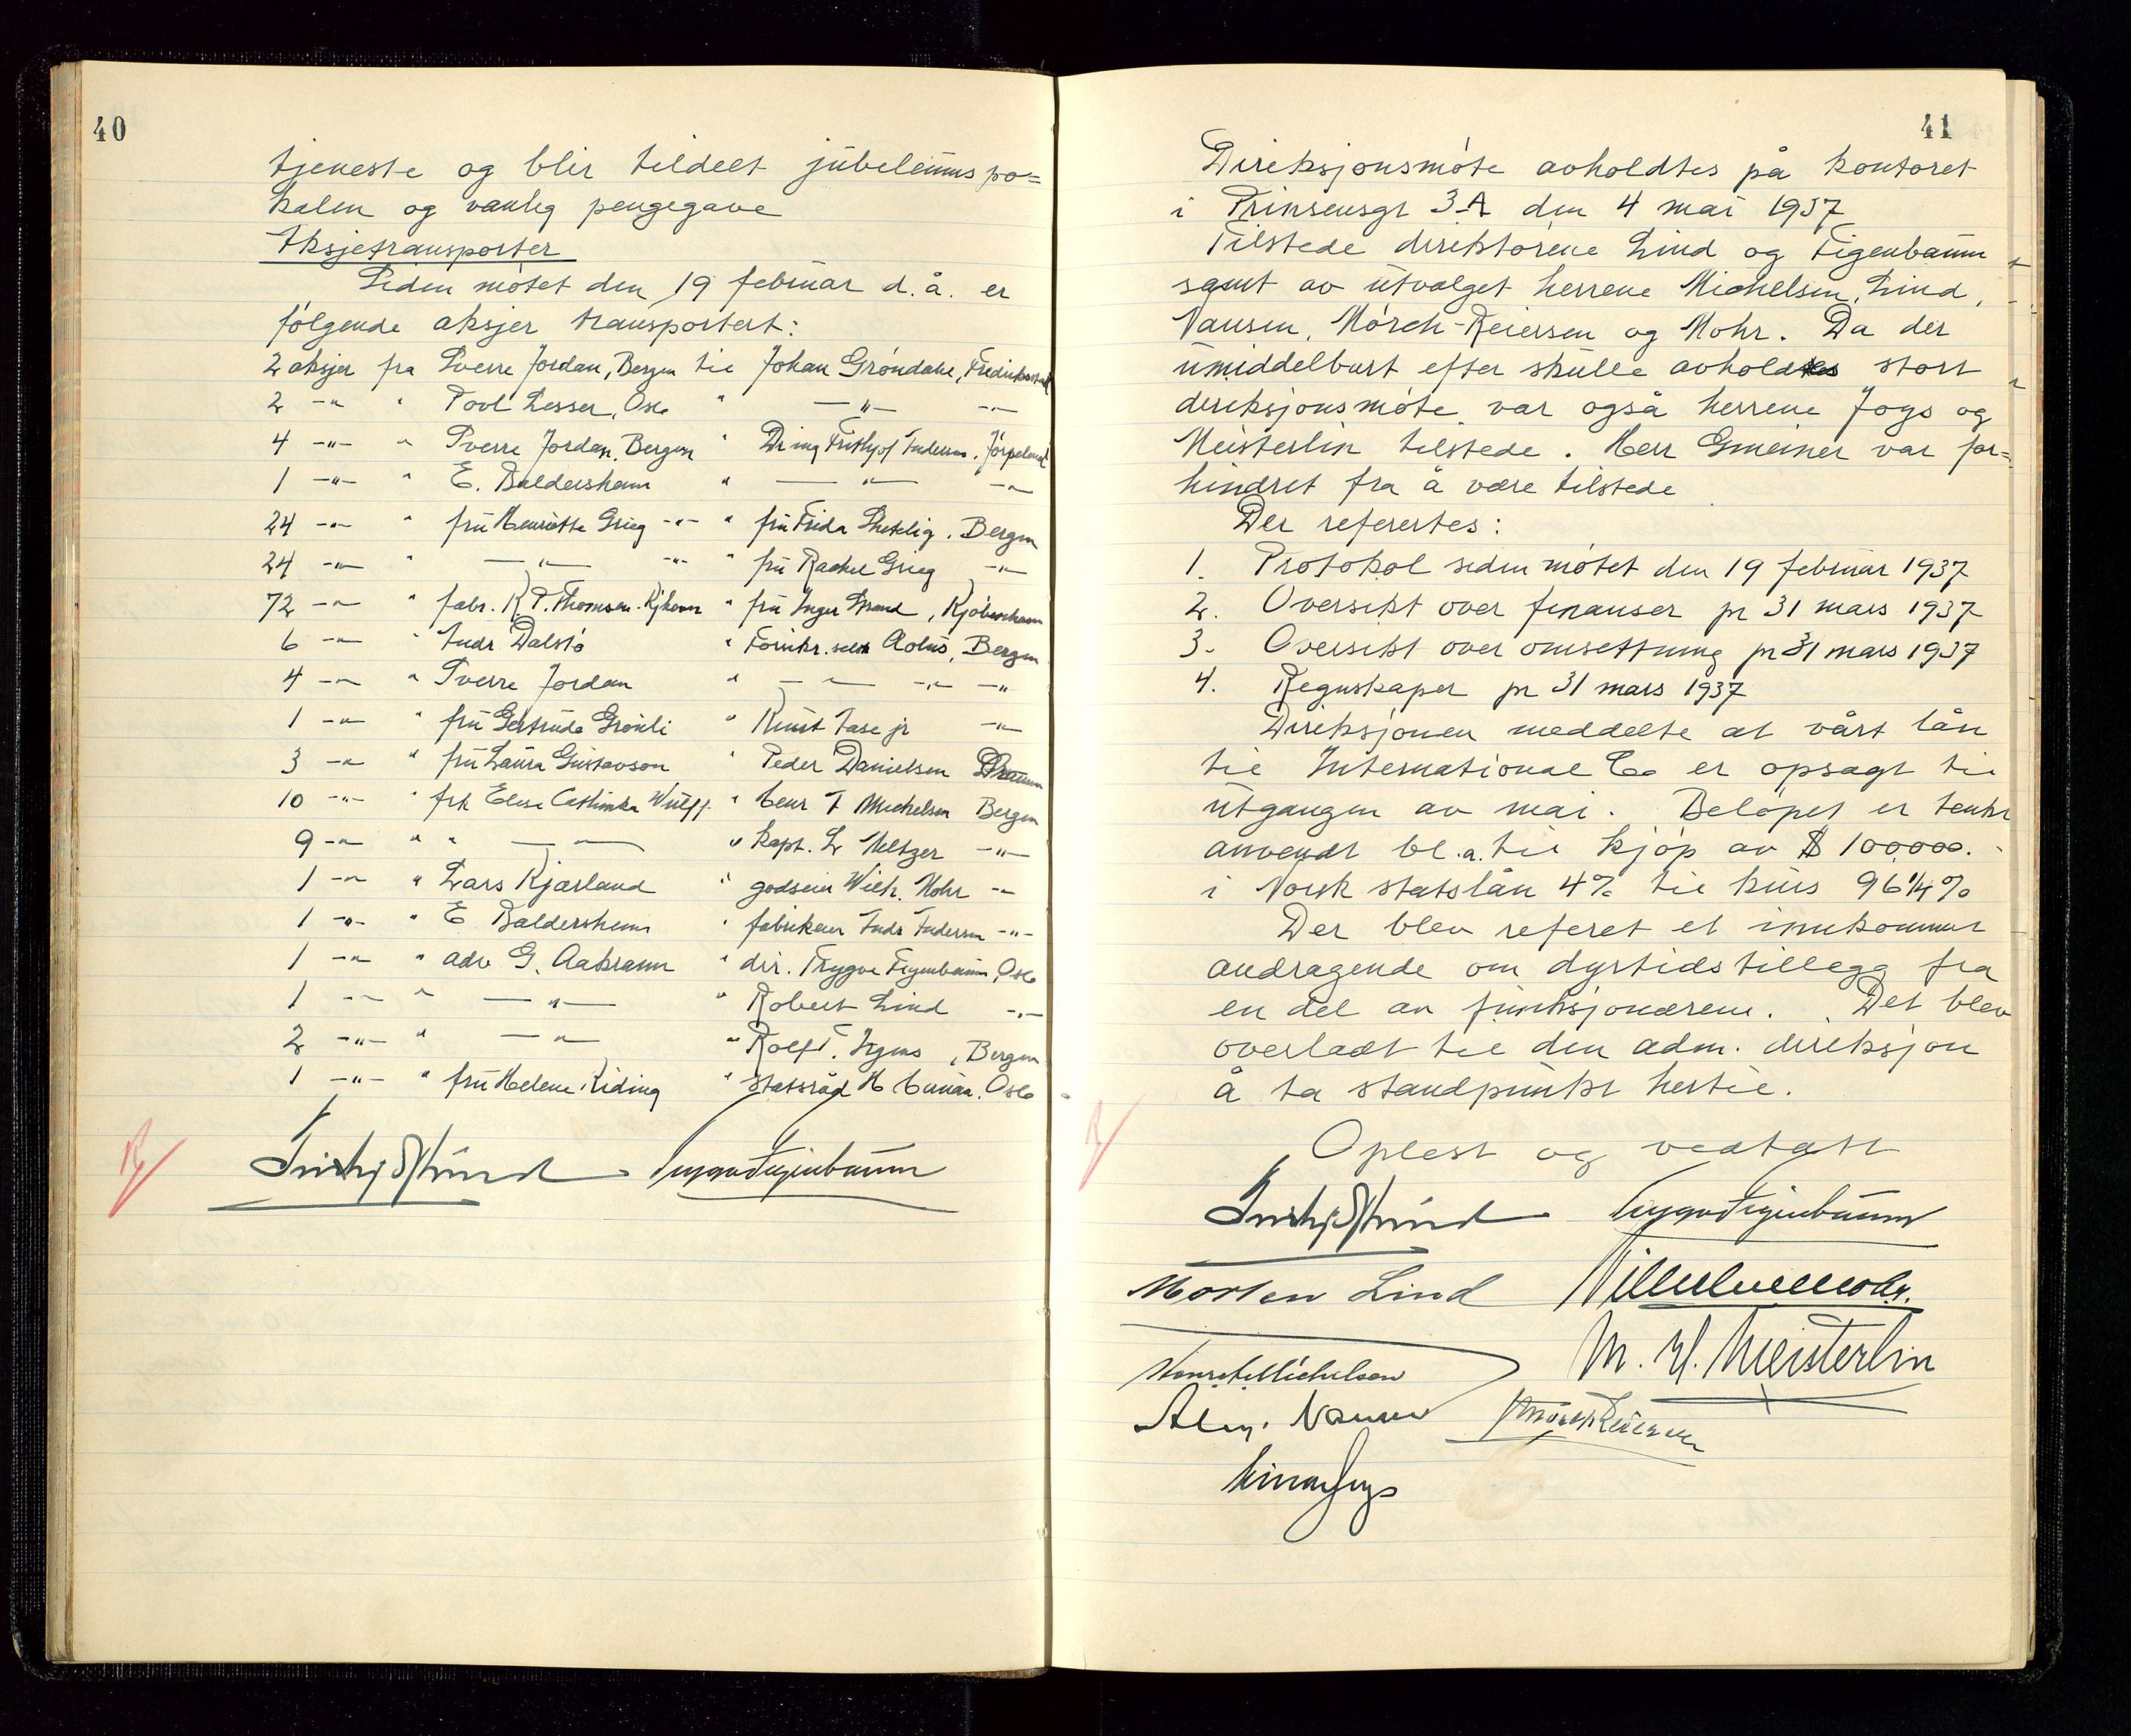 40
tjeneste og blir tildelt jubileums po=
kalen og vanlig pengegave
Aksjetransporter
Siden møtet den 19 februar d.å. er
følgende aksjer transportert:
2 aksjer fra Sverre Jordan, Bergen til Johan Grøndahl, Fredrikstad
2 -"- " Povl Lesser, Oslo " -"- -"-
4 -"- " Sverre Jordan, Bergen " Dr ing Frithjof Andersen, Jørpeland
1 -"- " E. Baldersheim " -"- -"-
24 -"- " fru Henriette Grieg -"- " fru Frida Shetelig, Bergen
24 -"- " -"- -"- " fru Rachel Grieg -"-
72 -"- " fabr. K. P. Thomsen. Kjhavn " fru Inger Strand, Kjøbenhavn
6 -"- " Andr Dalstø " Forsikr. selsk Æolus, Bergen
4 -"- " Sverre Jordan " -"- -"- -"-
1 -"- " fru Gertrude Grønli " Knut Aase jr -"-
3 -"- " fru Laura Gustavson " Peder Danielsen
10 -"- " frk Elise Cathinka Wulff " Chr Michelsen Bergen
9 -"- " " -"- " kapt. L Meltzer -"-
1 -"- " Lars Kjærland " godseier Wilh. Mohr -"-
1 -"- " E Baldersheim " fabrikeier Andr Andersen -"-
1 -"- " adv G. Aakrann " dir. Trygve Figenbaum, Oslo
1 -"- " -"- " Robert Lind -"-
2 -"- " -"- " Rolf T. Irgens, Bergen
1 -"- " fru Helene Riding " statsråd H. Oslo
Frithjof Lind Trygve Figenbaum
41
Direksjonsmøte avholdtes på kontoret
i Prinsensgt 3A den 4 mai 1937
Tilstede direktørene Lind og Figenbaum
samt av utvalget herrene Michelsen, Lind,
Nansen, Mørch-Reiersen og Mohr. Da der
umiddelbart efter skulle avholdes stort
direksjonsmøte var også herrene Jogs og
Meisterlin tilstede. Herr Gmeiner var for=
hindret fra å være tilstede
Der refertes:
1. Protokol siden møtet den 19 februar 1937
2. Oversikt over finanser pr 31 mars 1937
3. Oversikt over omsettning pr 31 mars 1937
4. Regnskaper pr 31 mars 1937
Direksjonen meddelte at vårt lån
til International Co er opsagt til
utgangen av mai. Beløpet er tenkt
anvendt bl.a. til kjøp av $ 100,000.-
i Norsk statslån 4% til kurs 96 1/4%
Der blev referet et innkommet
andragende om dyrtidstillegg fra
en del av funksjonærene. Det blev
overladt til den adm. direksjon
å ta standpunkt hertil.
Oplest og vedtatt
Frithjof Lind Trygve Figenbaum
Morten Lind Wilhelm Mohr.
Michelsen M. H. Meisterlin
Alex. Nansen Mørch Reiersen
Einar Jogs